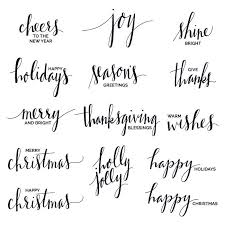 cheers
TO THE
NEW YEAR
joy
shine
BRIGHT
HAPPY
holidays
season's
GREETINGS
GIVE
thanks
merry
AND BRIGHT
thanksgiving
BLESSINGS
WARM
wishes
MERRY
christmas
holly
jolly
happy
HOLIDAYS
HAPPY
christmas
happy
CHRISTMAS